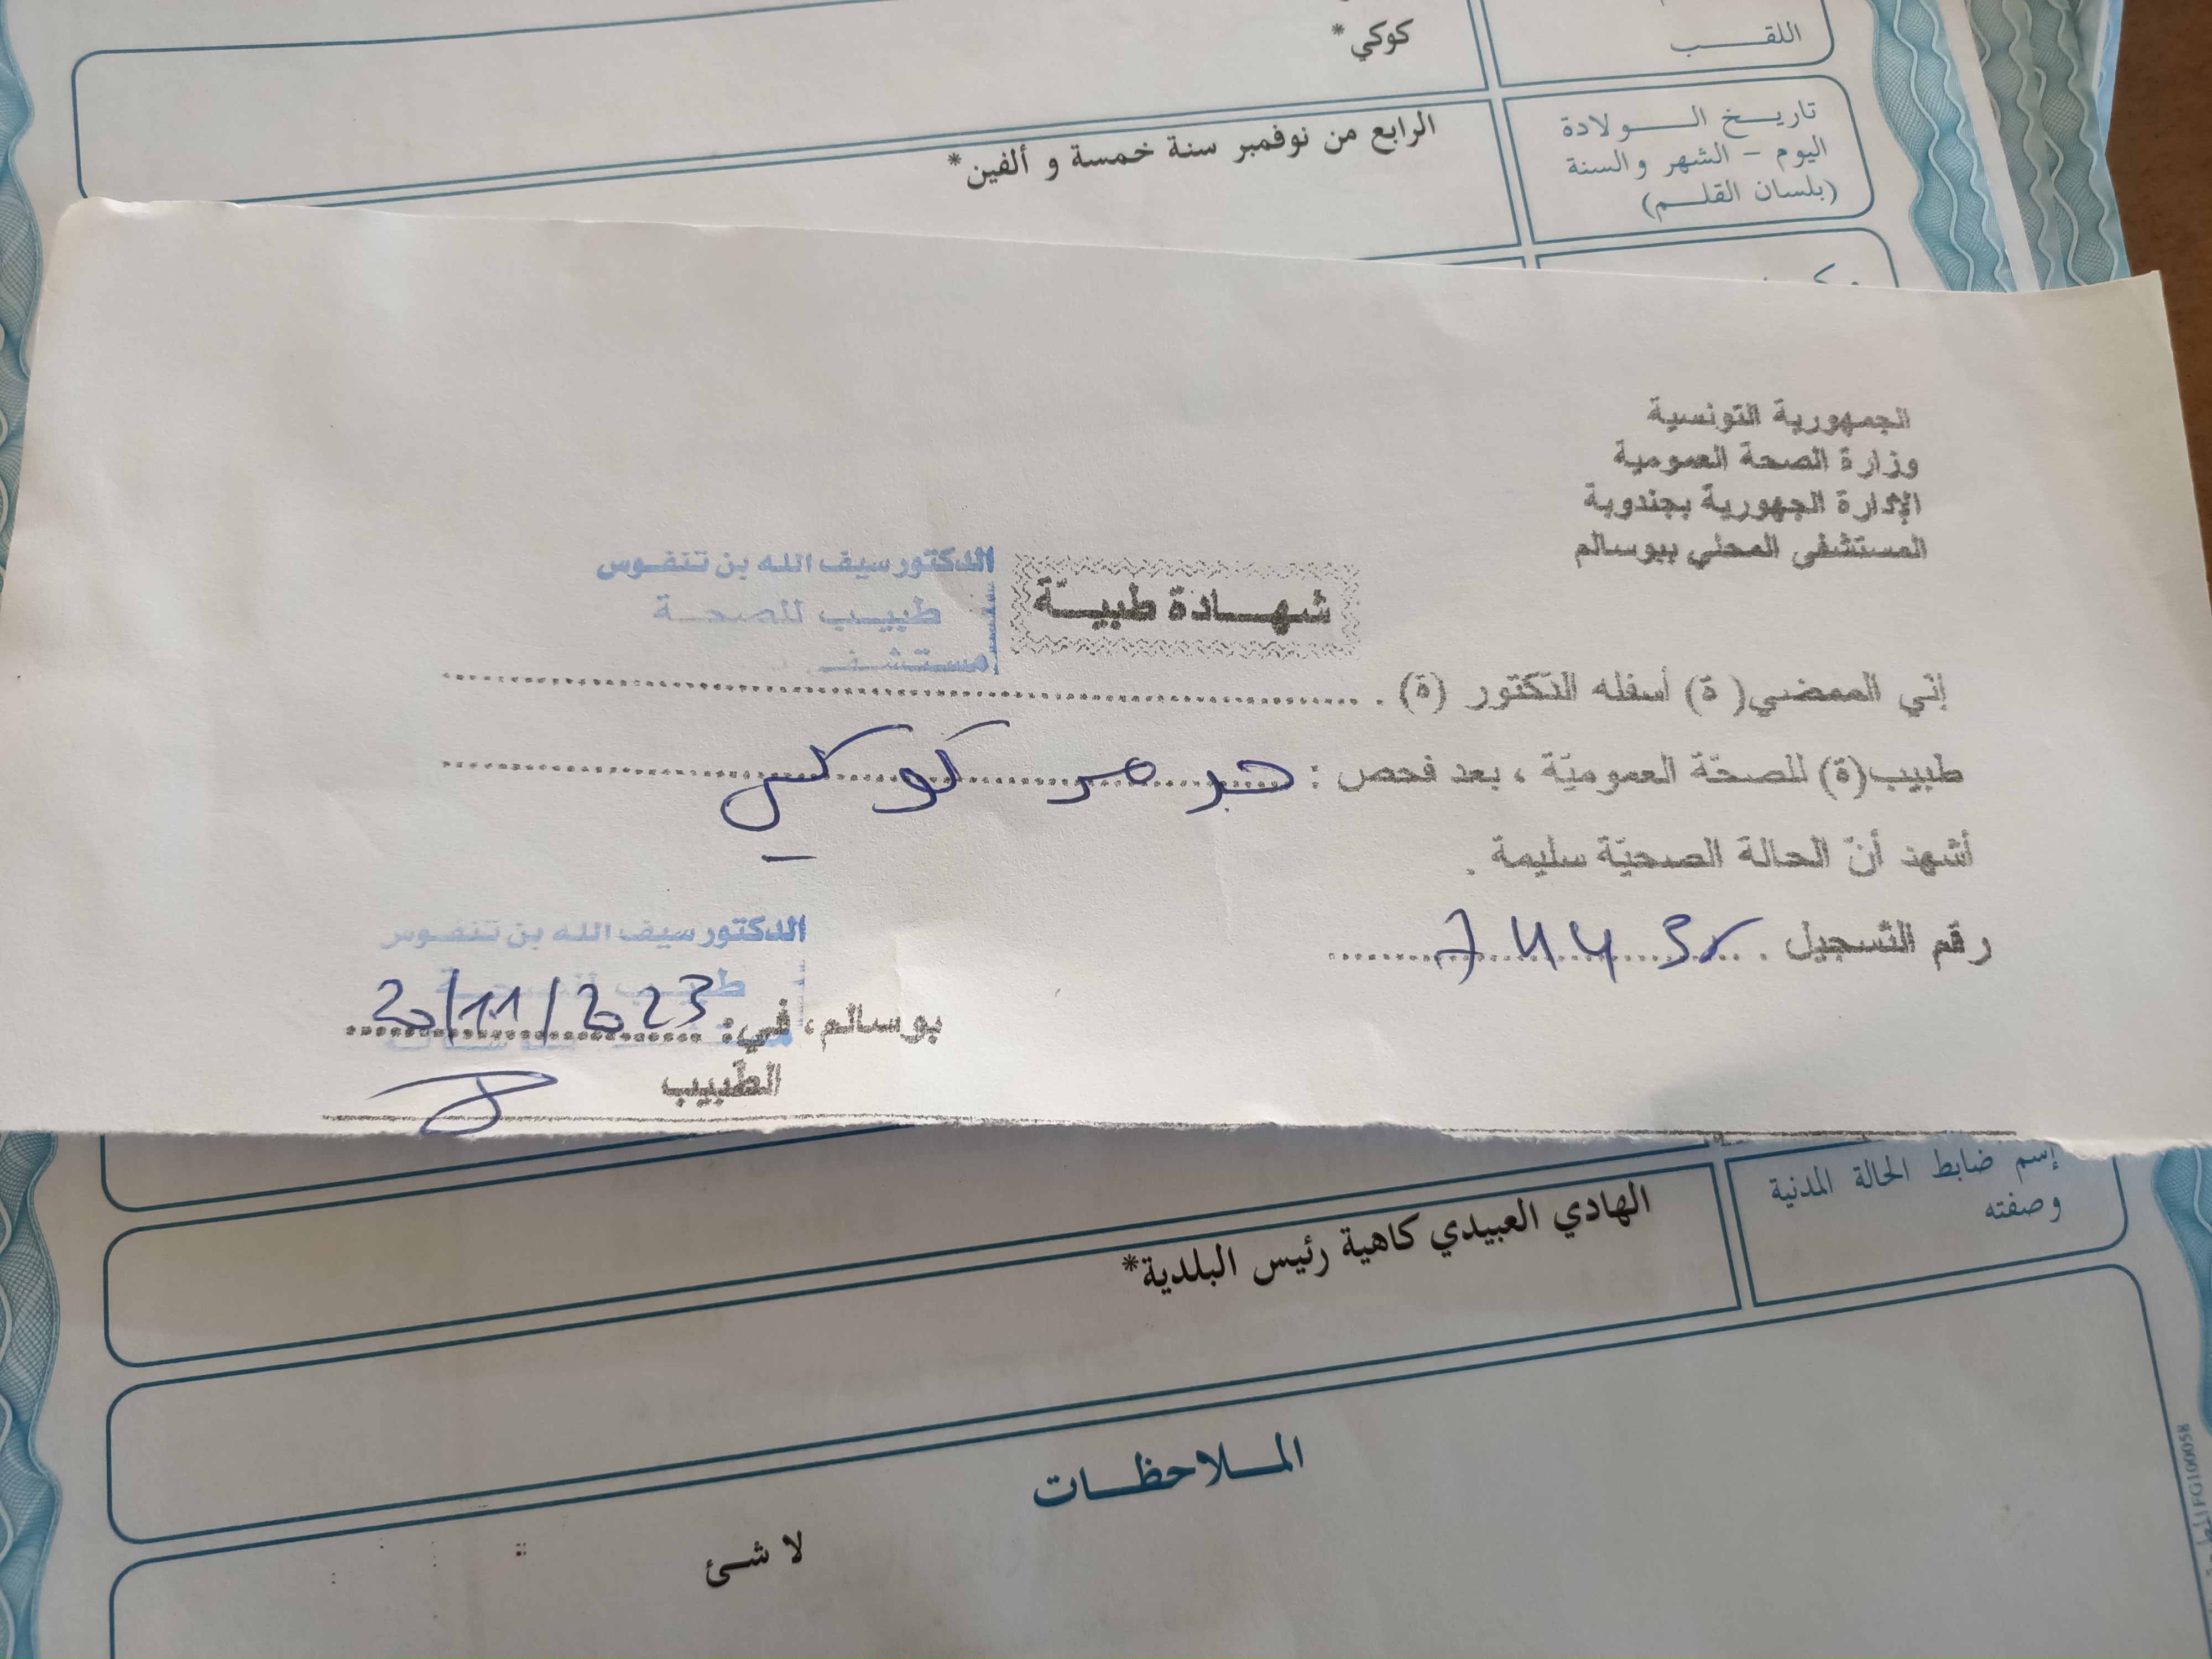 اللقب
كوكي*
تاريخ الولادة
اليوم - الشهر والسنة
(بلسان القلم)
الرابع من نوفمبر سنة خمسة و ألفين*
الجمهورية التونسية
وزارة الصحة العمومية
الإدارة الجهورية بجندوبة
المستشفى المحلي ببوسالم
شهادة طبيّة
الدكتور سيف الله بن تنفوس
طبيب للصحة
مستشفى
إني الممضي(ة) أسفله الدكتور (ة) .
طبيب(ة) للصحّة العموميّة ، بعد فحص : كوكي
أشهد أنّ الحالة الصحيّة سليمة .
رقم التسجيل .
الدكتور سيف الله بن تنفوس
بوسالم، في: 20/11/2023
الطبيب
إسم ضابط الحالة المدنية
وصفته
الهادي العبيدي كاهية رئيس البلدية*
الملاحظات
لا شئ